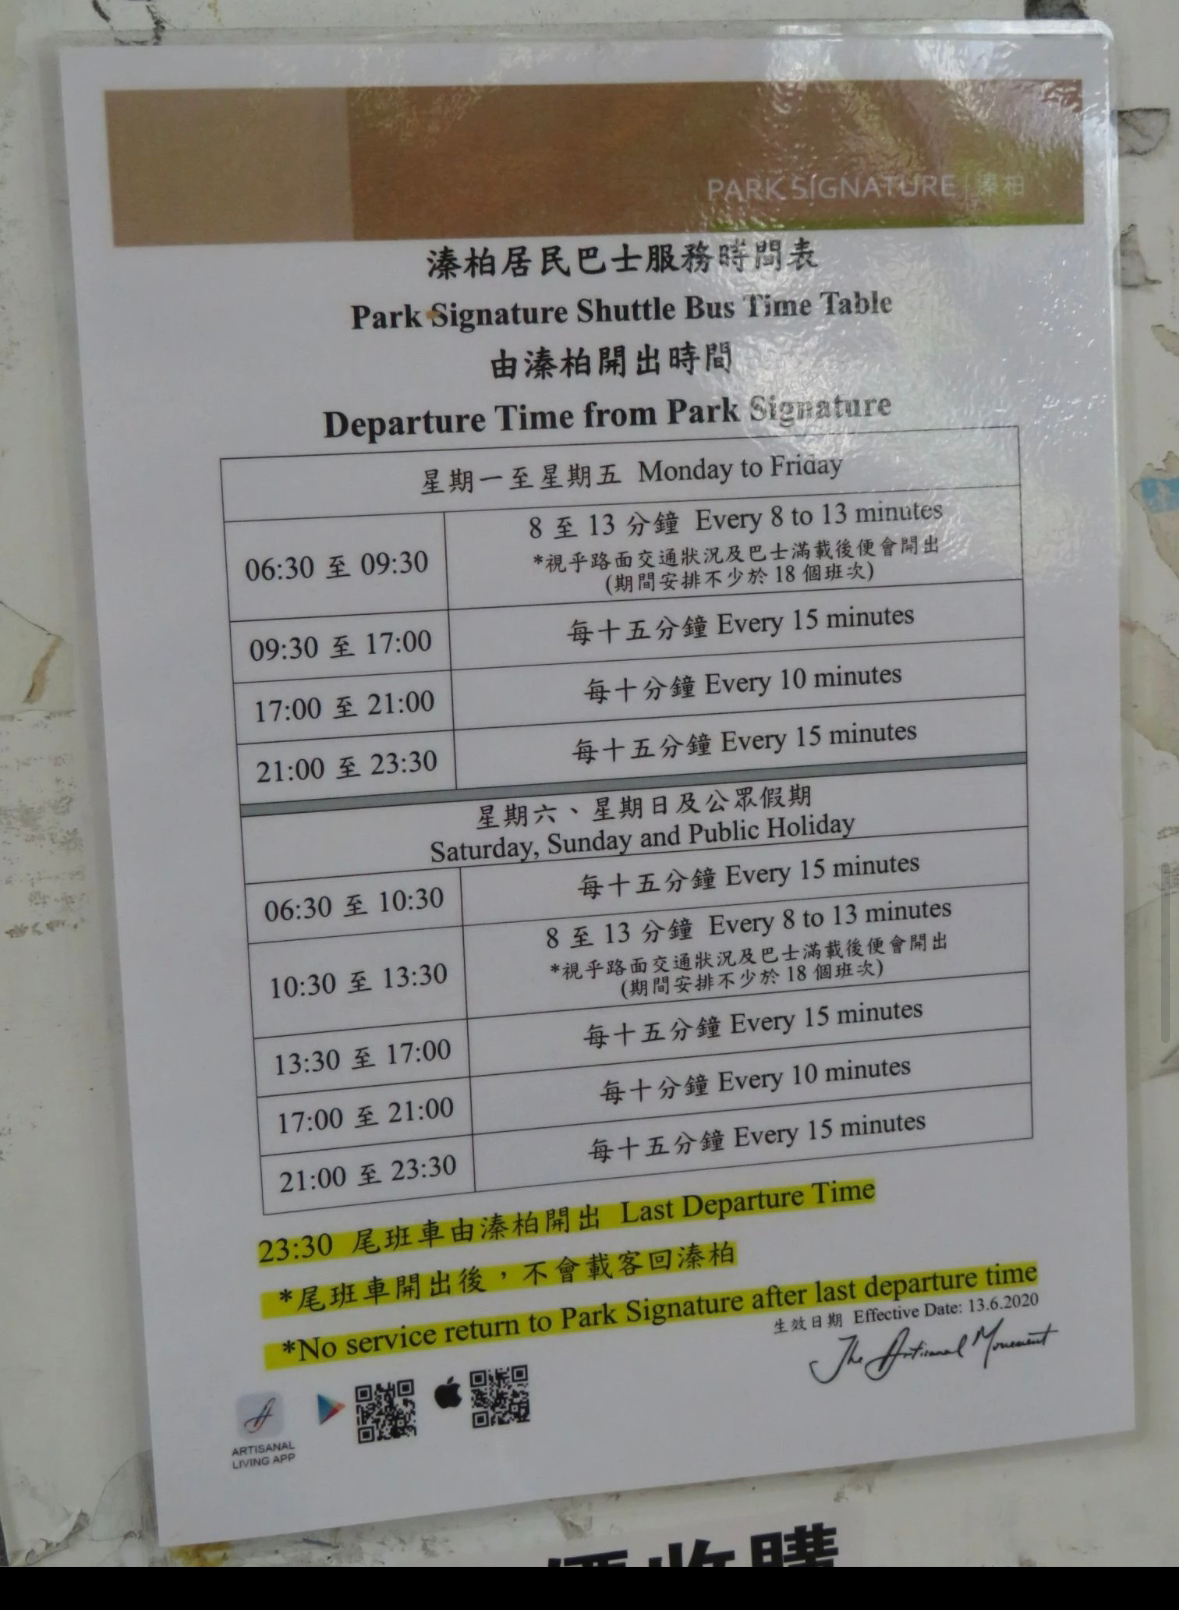 PARK SIGNATURE 溱柏
溱柏居民巴士服務時間表
Park Signature Shuttle Bus Time Table
由溱柏開出時間
Departure Time from Park Signature
星期一至星期五 Monday to Friday
06:30 至 09:30
8 至 13 分鐘 Every 8 to 13 minutes
*視乎路面交通狀況及巴士滿載後便會開出
(期間安排不少於 18 個班次)
09:30 至 17:00 每十五分鐘 Every 15 minutes
17:00 至 21:00 每十分鐘 Every 10 minutes
21:00 至 23:30 每十五分鐘 Every 15 minutes
星期六、星期日及公眾假期
Saturday, Sunday and Public Holiday
06:30 至 10:30 每十五分鐘 Every 15 minutes
10:30 至 13:30
8 至 13 分鐘 Every 8 to 13 minutes
*視乎路面交通狀況及巴士滿載後便會開出
(期間安排不少於 18 個班次)
13:30 至 17:00 每十五分鐘 Every 15 minutes
17:00 至 21:00 每十分鐘 Every 10 minutes
21:00 至 23:30 每十五分鐘 Every 15 minutes
23:30 尾班車由溱柏開出 Last Departure Time
*尾班車開出後，不會載客回溱柏
*No service return to Park Signature after last departure time
生效日期 Effective Date: 13.6.2020
The Artisanal Movement
ARTISANAL
LIVING APP
收購